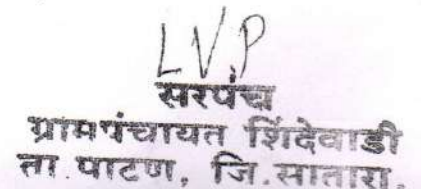 L.V.P
सरपंच
ग्रामपंचायत शिंदेवाडी
ता.पाटण, जि.सातारा.